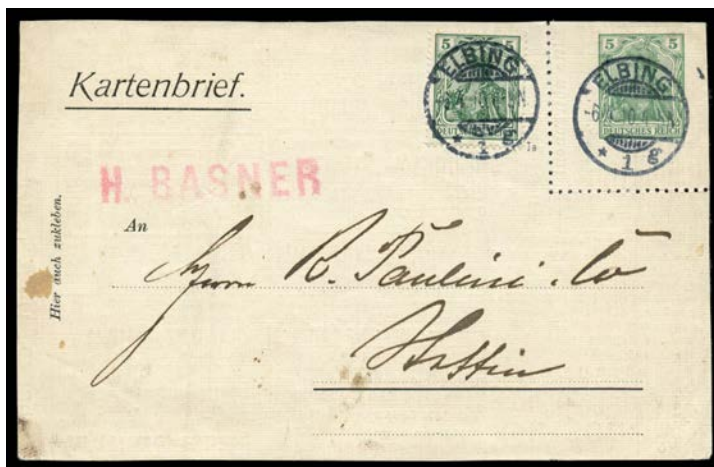 Kartenbrief.
5 5
ELBING
DEUTSCHES REICH
* 1 g
5 5
ELBING
-6.4.10
DEUTSCHES REICH
* 1 g
H. BASNER
Hier auch zukleben.
An
Herrn R. Paulini. Co
Stettin